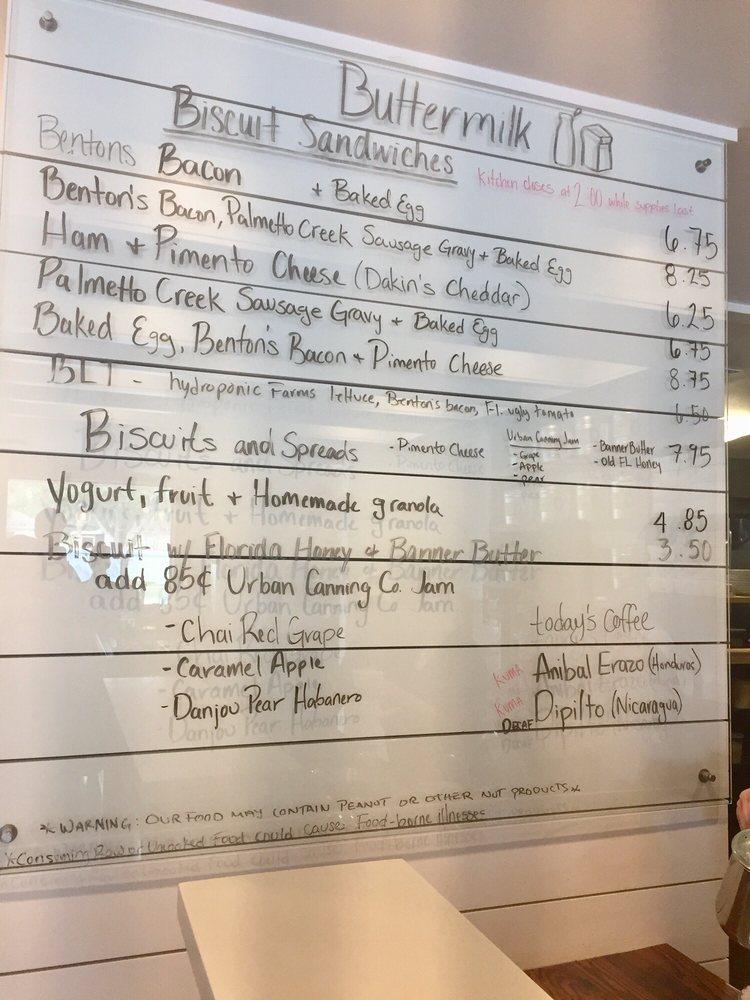 Buttermilk
Biscuit Sandwiches
Kitchen closes at 2:00 while supplies last
Bentons Bacon + Baked Egg 6.75
Benton's Bacon, Palmetto Creek Sausage Gravy + Baked Egg 8.25
Ham + Pimento Cheese (Dakin's Cheddar) 6.25
Palmetto Creek Sausage Gravy + Baked Egg 6.75
Baked Egg, Benton's Bacon + Pimento Cheese 8.75
BLT - hydroponic Farms lettuce, Benton's bacon, Fl. ugly tomato 6.50
Biscuits and Spreads 7.95
- Pimento Cheese
Urban Canning Jam
- Grape
- Apple
- pear
- Banner Butter
- Old FL Honey
Yogurt, fruit + Homemade granola 4.85
Biscuit w/ Florida Honey + Banner Butter 3.50
add 85¢ Urban Canning Co. Jam
- Chai Red Grape
- Caramel Apple
- Danjou Pear Habanero
today's Coffee
Kuma Anibal Erazo (Honduras)
Kuma
Decaf Dipilto (Nicaragua)
* WARNING: OUR FOOD MAY CONTAIN PEANUT OR OTHER NUT PRODUCTS *
* Consuming Raw or Uncooked Food could cause Food-borne illnesses